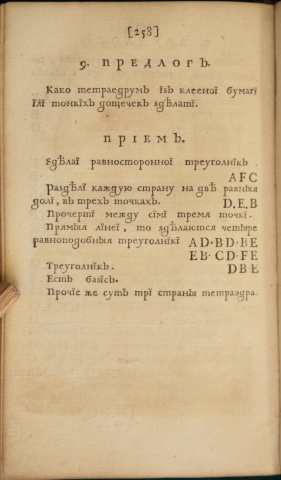 [258]
9. ПРЕДЛОГЪ.
Како тетраедрумъ ізъ клееної бумагї
їлї тонкїхъ дощечек ѕдѣлатї.
ПРІЕМЪ.
Ѕдѣлаї равносторонної треуголнїкъ.
AFC
Раздѣлї каждую страну на двѣ равнїя
долї, въ трехъ точкахъ. D.E.B
Прочертї между сїмї тремя точкї.
Прямїя лїнеї, то ѕдѣлаются четыре
равноподобнїя треуголнїкї AD·BD·BE
EB·CD·FE
Треуголнїкъ. DBE
Есть базїсъ.
Прочїе же суть трї странїя тетраэдра.